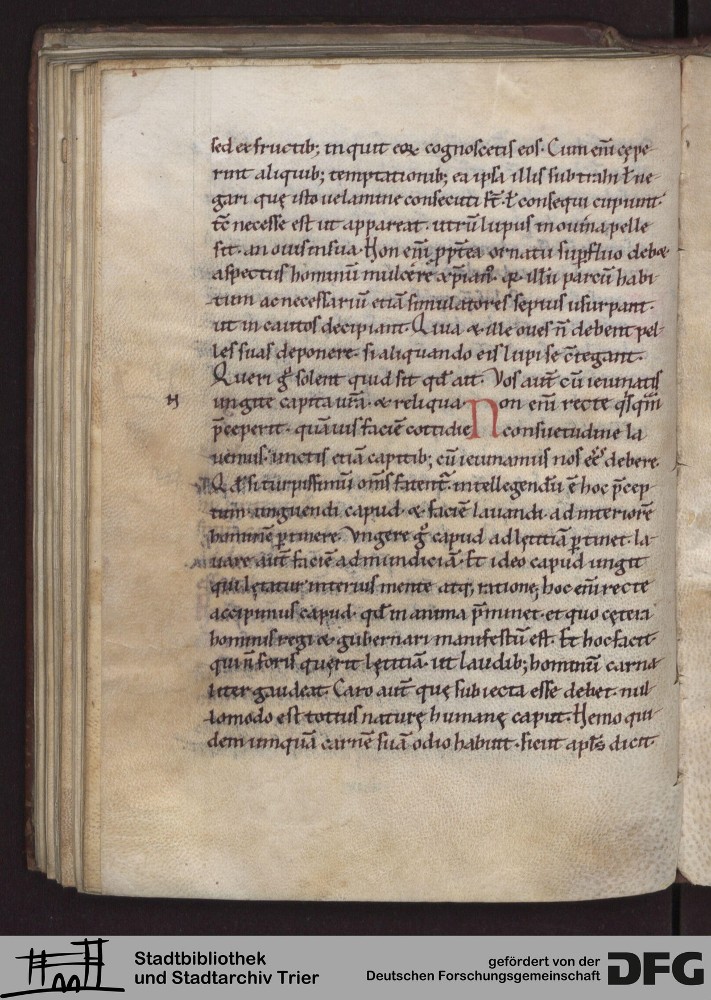 sed ex fructib; inquit eoꝝ cognoscetis eos. Cum em̄ cępe
rint aliquib; temptationib; ea ipsa illis subtrahi ł ne
gari quę isto uelamine consecuti st̄ ł consequi cupiunt.
tc̄ necesse est ut appareat. utrū lupus in ouina pelle
sit. an ouis in sua. Non em̄ ꝓpt̄ea ornatu supfluo debet
aspectus hominū mulcere xp̄ian'. quia illū parcū habi
tum ac necessariū etiā simulatores sepius usurpant.
ut incautos decipiant. Quia & ille oues n̄ debent pel
les suas deponere. si aliquando eis lupi se c̄tegant.
Queri g̊ solent quid sit qd̄ ait. Vos aut̄ cū ieiunatis
H ungite capita ur̄a. & reliqua. Non em̄ recte qͥsqͣm
p̄ceperit. quāuis faciē cottidie consuetudine la
uemus. unctis etiā capitib; cū ieiunamus nos eē debere.
Qd̄ si turpissimū om̄s fatent̄. intellegendū ē hoc p̄cep
tum unguendi capud. & faciē lauandi ad interiorē
hominē ꝑtinere. Vngere g̊ capud ad lętitiā ꝑtinet. la
uare aut̄ faciē ad mundiciā. Et ideo capud ungit
qui lętatur interius mente atq; ratione; hoc em̄ recte
accipimus capud. qd̄ in anima p̄minet. et quo cętera
hominis regi & gubernari manifestū est. Et hoc facit
qui n̄ foris querit lętitiā. ut laudib; hominū carna
liter gaudeat. Caro aut̄ quę subiecta esse debet. nul
lo modo est totius naturę humanę caput. Nemo qui
dem umquā carnē suā odio habuit. sicut apl̄s dicit.
Stadtbibliothek
und Stadtarchiv Trier
gefördert von der
Deutschen Forschungsgemeinschaft
DFG